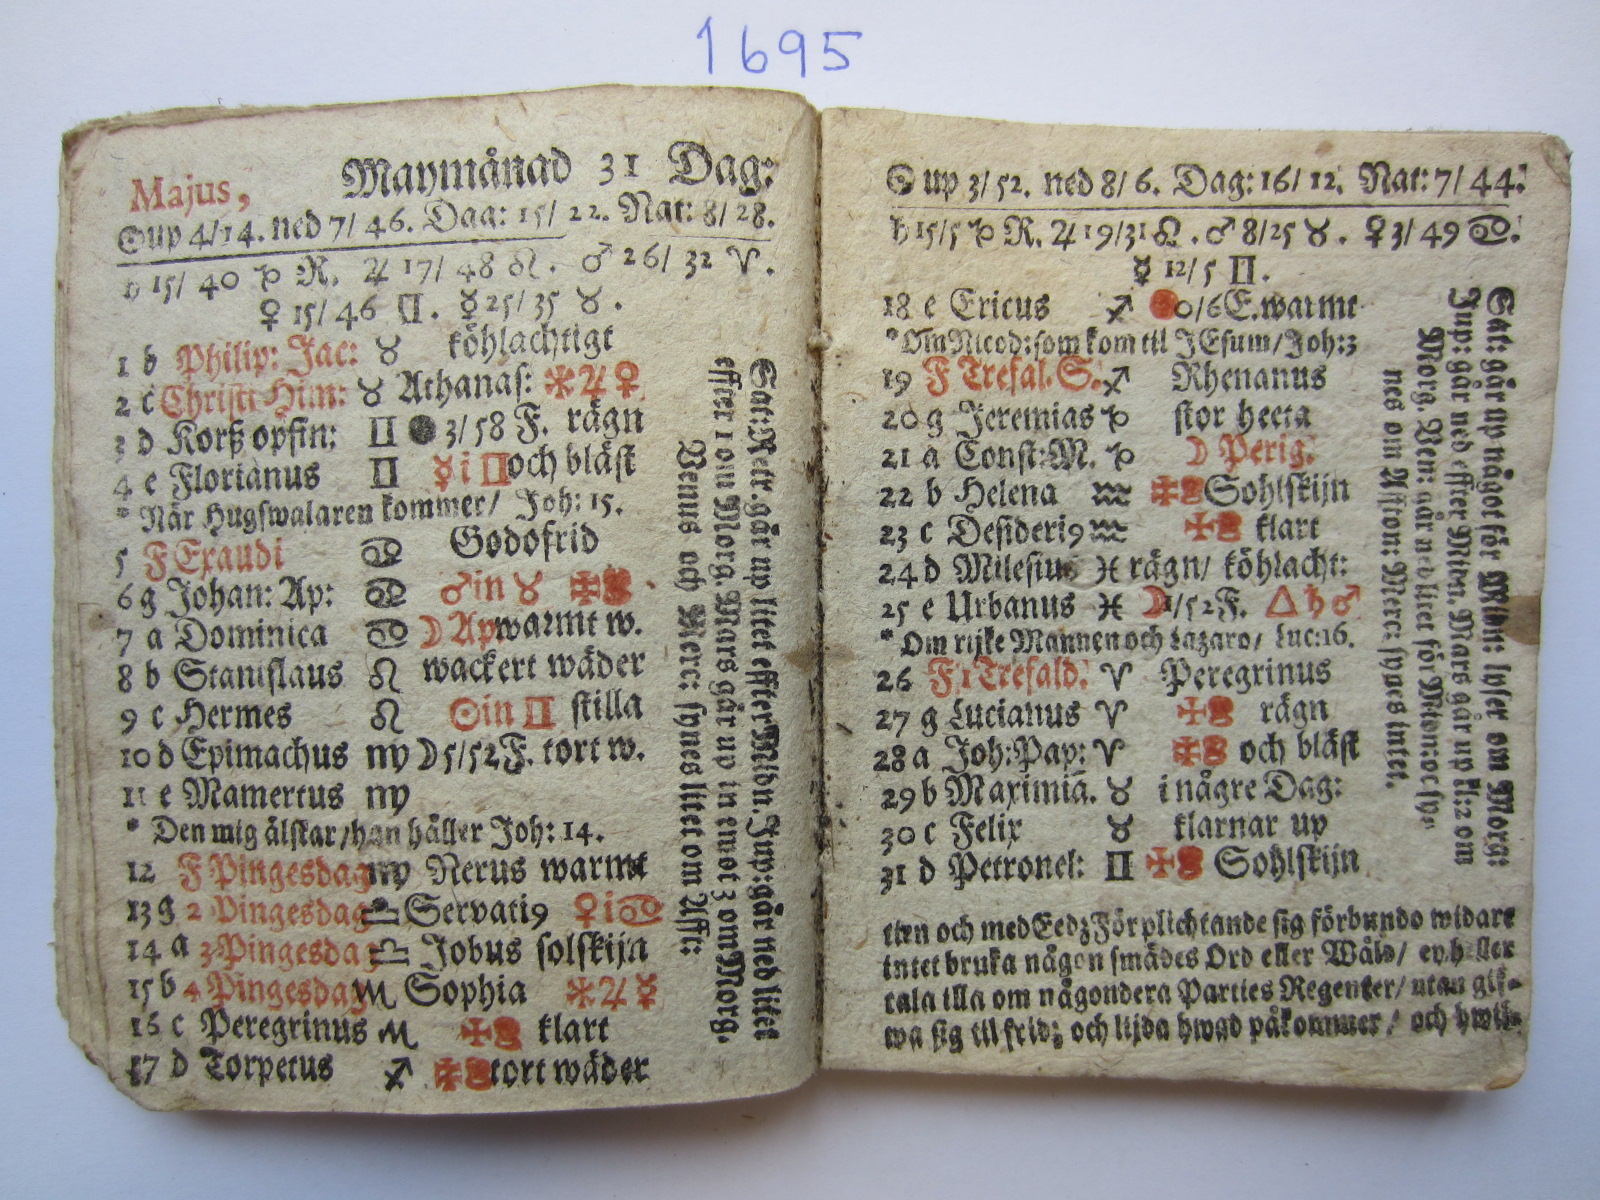 1695
Majus, Maymånad 31 Dag:
☉ up 4/14. ned 7/46. Dag: 15/22. Nat: 8/28.
♄ 15/40 ♑ R. ♃ 17/48 ♌. ♂ 26/32 ♈.
♀ 15/46 ♊. ☿ 25/35 ♉.
1 b Philip: Jac: ♉ köhlachtigt
2 c Christi Him: ♉ Athanas: ✶ ♃ ♀
3 d Korß opfin: ♊ ● 3/58 F. rägn
4 e Florianus ♊ ☿ i ♊ och bläst
* När Hugswalaren kommer/ Joh: 15.
5 F Exaudi ♋ Godofrid
6 g Johan: Ap: ♋ ♂ in ♉ ✠
7 a Dominica ♋ ☽ Ap warmt w.
8 b Stanislaus ♌ wackert wäder
9 c Hermes ♌ ☉ in ♊ stilla
10 d Epimachus ♍ ☽ 5/52 F. tort w.
11 e Mamertus ♍
* Den mig älskar/han håller Joh: 14.
12 F Pingesdag ♍ Nerus warmt
13 g 2 Pingesdag ♎ Servati9 ♀ i ♋
14 a 3 Pingesdag ♎ Jobus solskijn
15 b 4 Pingesdag ♏ Sophia ✶ ♃ ☿
16 c Peregrinus ♏ ✠ klart
17 d Torpetus ♐ ✠ tort wäder
Sat: Retr. går up litet effter Midn. Jup: går ned litet
effter 1 om Morg. Mars går up in emot 3 om Morg.
Venus och Merc: synes litet om Afft:
☉ up 3/52. ned 8/6. Dag: 16/12. Nat: 7/44.
♄ 15/5 ♑ R. ♃ 19/31 ♌. ♂ 8/25 ♉. ♀ 3/49 ♋.
☿ 12/5 ♊.
18 e Ericus ♐ 0/6 E. warmt
* Om Nicod: som kom til JEsum/Joh: 3
19 F Trefal. S. ♐ Rhenanus
20 g Jeremias ♑ stor heeta
21 a Const: M. ♑ ☽ Perig.
22 b Helena ♒ ✠ Sohlskijn
23 c Desideri9 ♒ ✠ klart
24 d Milesius ♓ rägn/ köhlacht:
25 e Urbanus ♓ ☽ 1/52 F. △ ♄ ♂
* Om rijke Mannen och Lazaro/ Luc: 16.
26 F 1 Trefald. ♈ Peregrinus
27 g Lucianus ♈ ✠ rägn
28 a Joh: Pap: ♈ ✠ och bläst
29 b Maximiā. ♉ i någre Dag:
30 c Felix ♉ klarnar up
31 d Petronel: ♊ ✠ Sohlskijn
Sat: går up något för Midn: lyser om Morg:
Jup: går ned effter Midn. Mars går up kl: 2 om
Morg. Ven: går ned litet för Midn: oc sy-
nes om Affton: Merc: synes intet.
tien och med Eedz Förplichtande sig förbundo widare
intet bruka någon smädes Ord eller Wåld/ ey heller
tala illa om någondera Parties Regenter/ utan gif-
wa sig til fridz och lijda hwad påkommer/ och hwil-